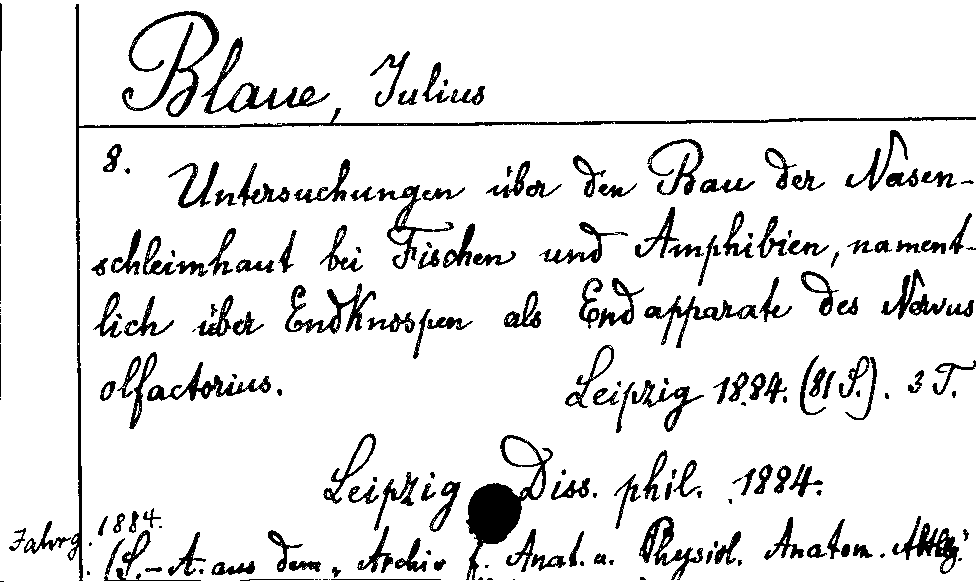 Blaue, Julius
8.
Untersuchungen über den Bau der Nasen-
schleimhaut bei Fischen und Amphibien, nament-
lich über Endknospen als Endapparate des Nervus
olfactorius.
Leipzig 1884. (81 S.). 3 T.
Leipzig Diss. phil. 1884.
Jahrg. 1884.
(S.-A. aus dem „Archiv f. Anat. u. Physiol. Anatom. Abthlg."